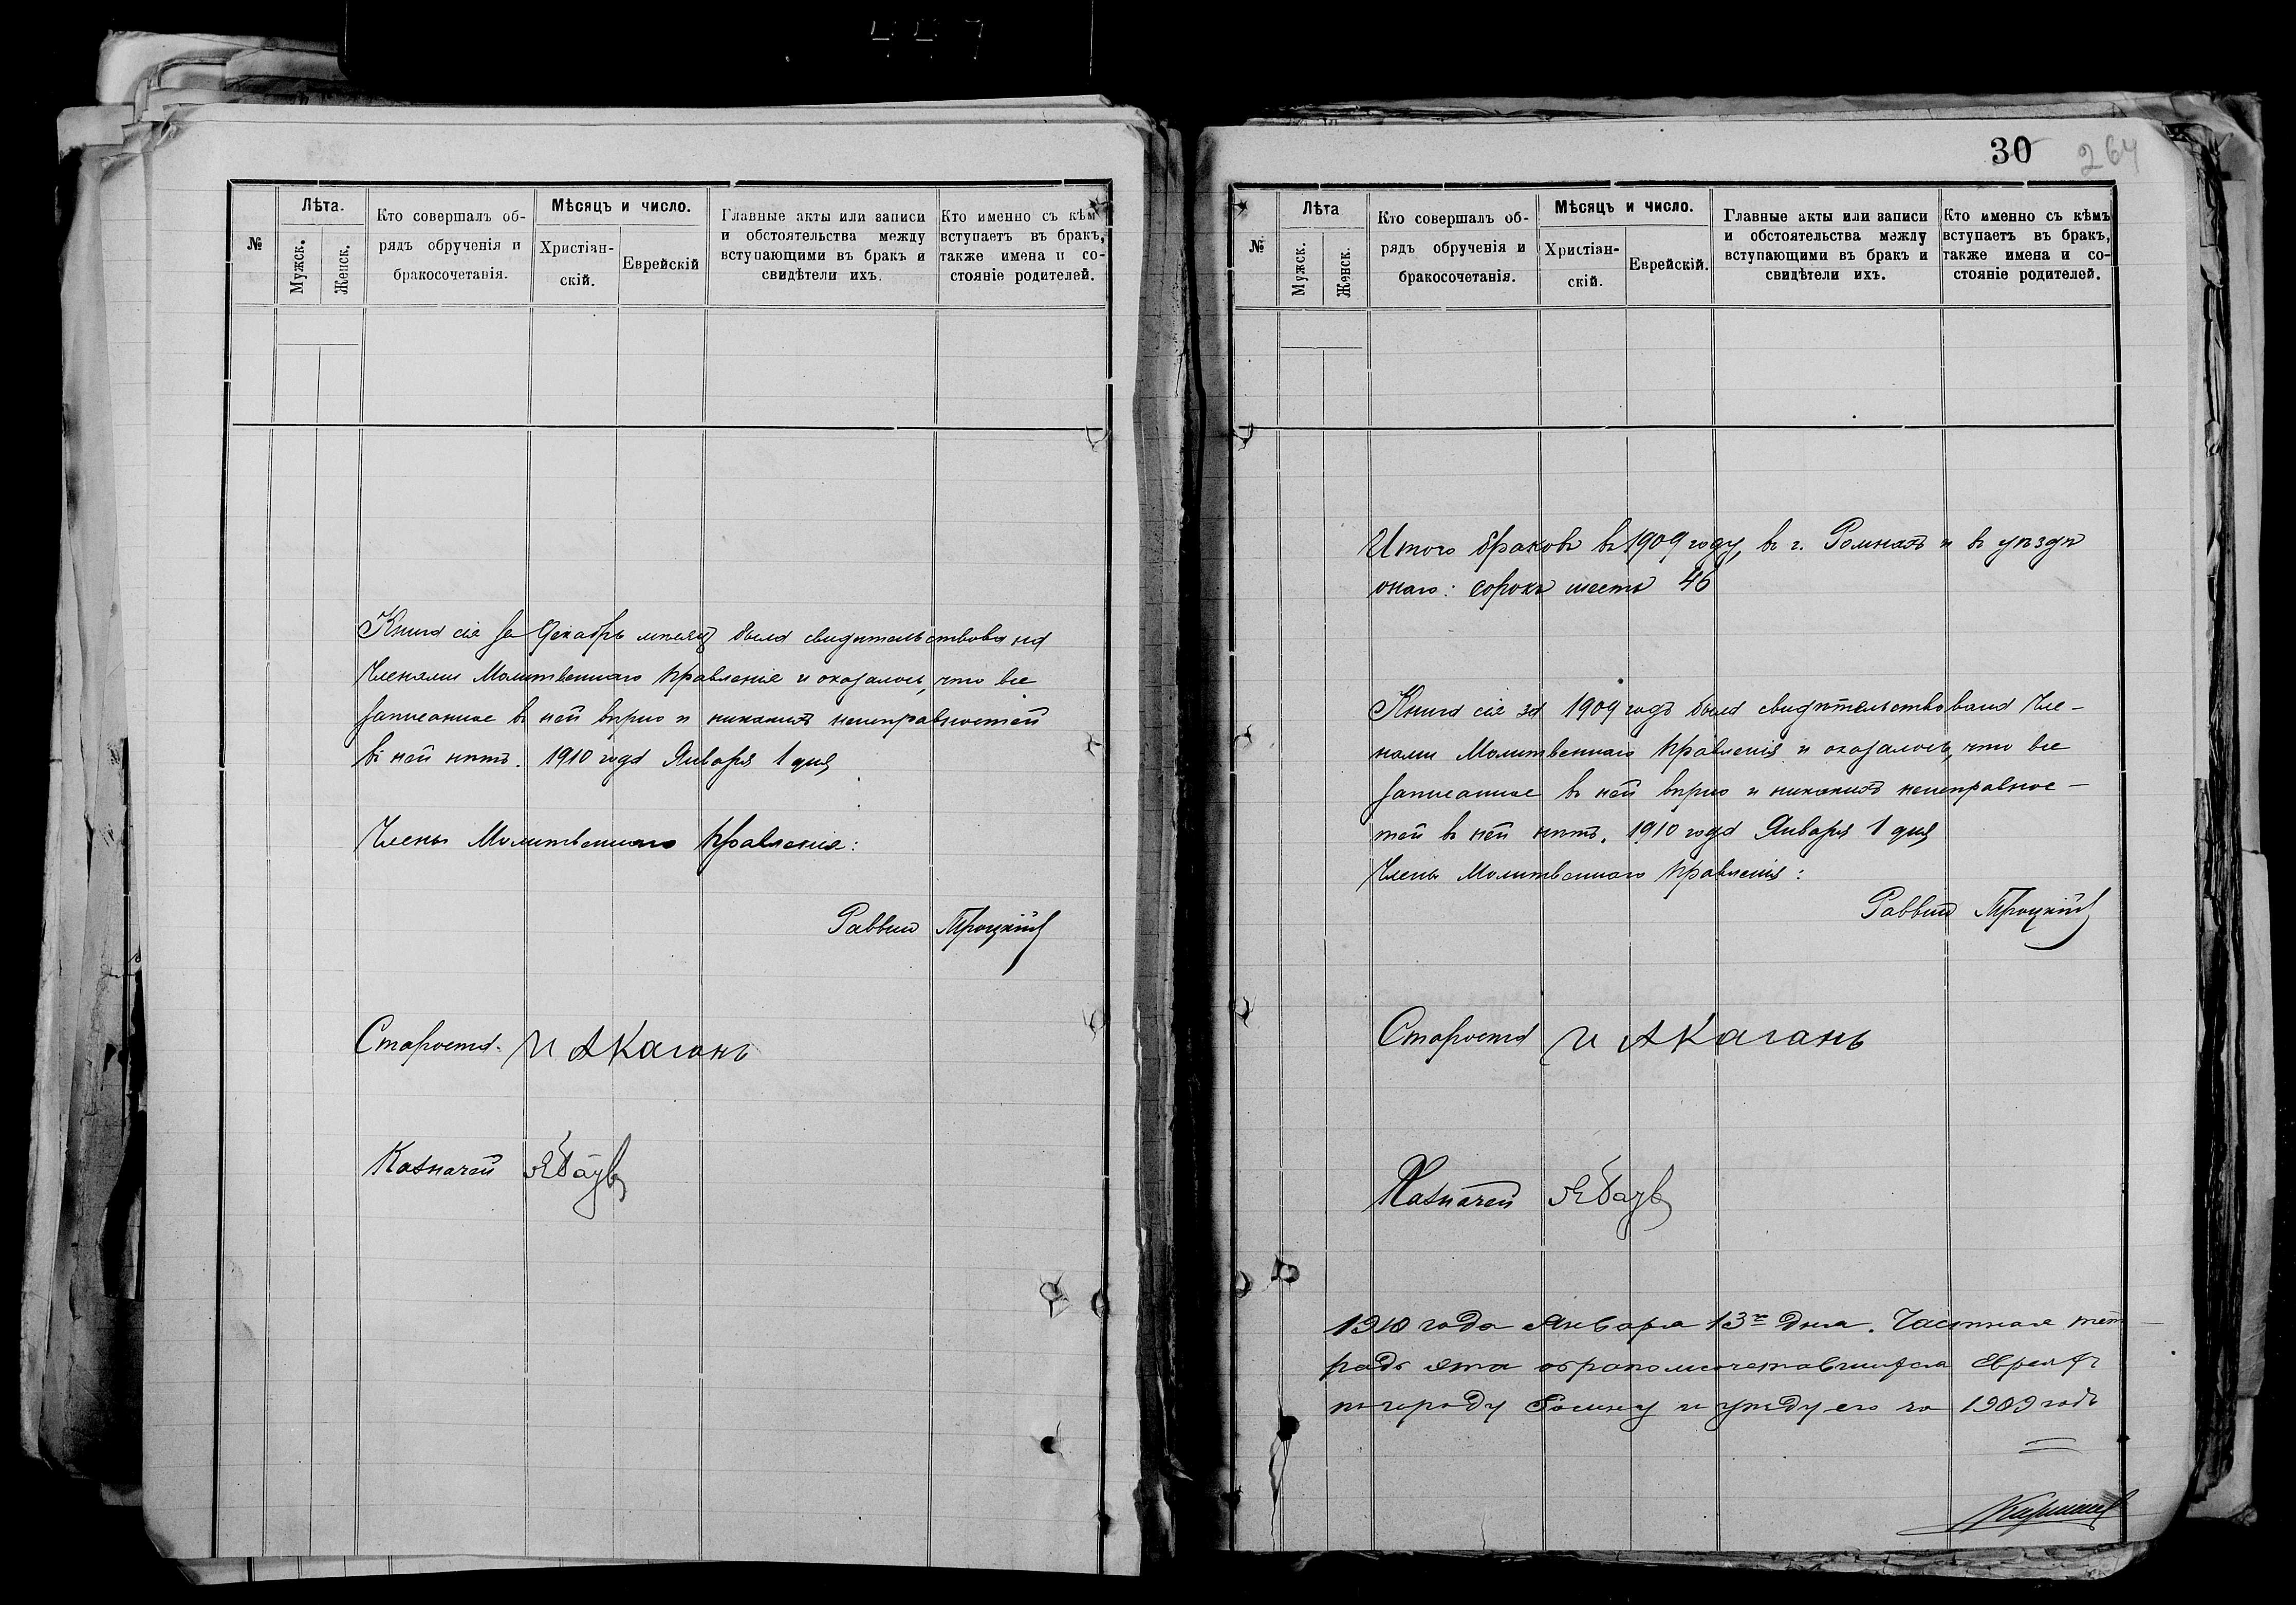 №
Лѣта.
Мужск.
Женск.
Кто совершалъ об-
рядъ обрученія и
бракосочетанія.
Мѣсяцъ и число.
Христіан-
скій.
Еврейскій
Главные акты или записи
и обстоятельства между
вступающими въ бракъ и
свидѣтели ихъ.
Кто именно съ кѣмъ
вступаетъ въ бракъ,
также имена и со-
стояніе родителей.
Книга сія за Декабрь мѣсяцъ была свидѣтельствована
Членами Молитвеннаго Правленія и оказалось, что все
записанное въ ней вѣрно и никакихъ неисправностей
въ ней нѣтъ. 1910 года Января 1 дня
Члены Молитвеннаго Правленія:
Раввинъ Троцкій
Староста И А Каганъ
Казначей
30
264
№
Лѣта
Мужск.
Женск.
Кто совершалъ об-
рядъ обрученія и
бракосочетанія.
Мѣсяцъ и число.
Христіан-
скій.
Еврейскій.
Главные акты или записи
и обстоятельства между
вступающими въ бракъ и
свидѣтели ихъ.
Кто именно съ кѣмъ
вступаетъ въ бракъ,
также имена и со-
стояніе родителей.
Итого браковъ въ 1909 году, въ г. Ромнахъ и въ уѣздѣ
онаго: сорокъ шесть 46
Книга сія за 1909 годъ была свидѣтельствована Чле-
нами Молитвеннаго Правленія и оказалось, что все
записанное въ ней вѣрно и никакихъ неисправнос-
тей въ ней нѣтъ. 1910 года Января 1 дня
Члены Молитвеннаго Правленія:
Раввинъ Троцкій
Староста И А Каганъ
Казначей
1910 года Января 13го дня. Частная тет
радь эта о бракомъсочетавшихся Евреяхъ
по городу Ромну и уѣзду его за 1909 годъ